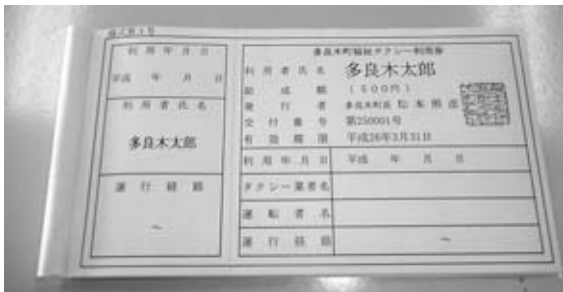 様式第3号
利用年月日
平成 年 月 日
利用者氏名
多良木太郎
運行経路
～
多良木町福祉タクシー利用券
利用者氏名 多良木太郎
助成額 (500円)
発行者 多良木町長 松本照彦
交付番号 第250001号
有効期限 平成26年3月31日
利用年月日 平成 年 月 日
タクシー業者名
運転者名
運行経路 ～